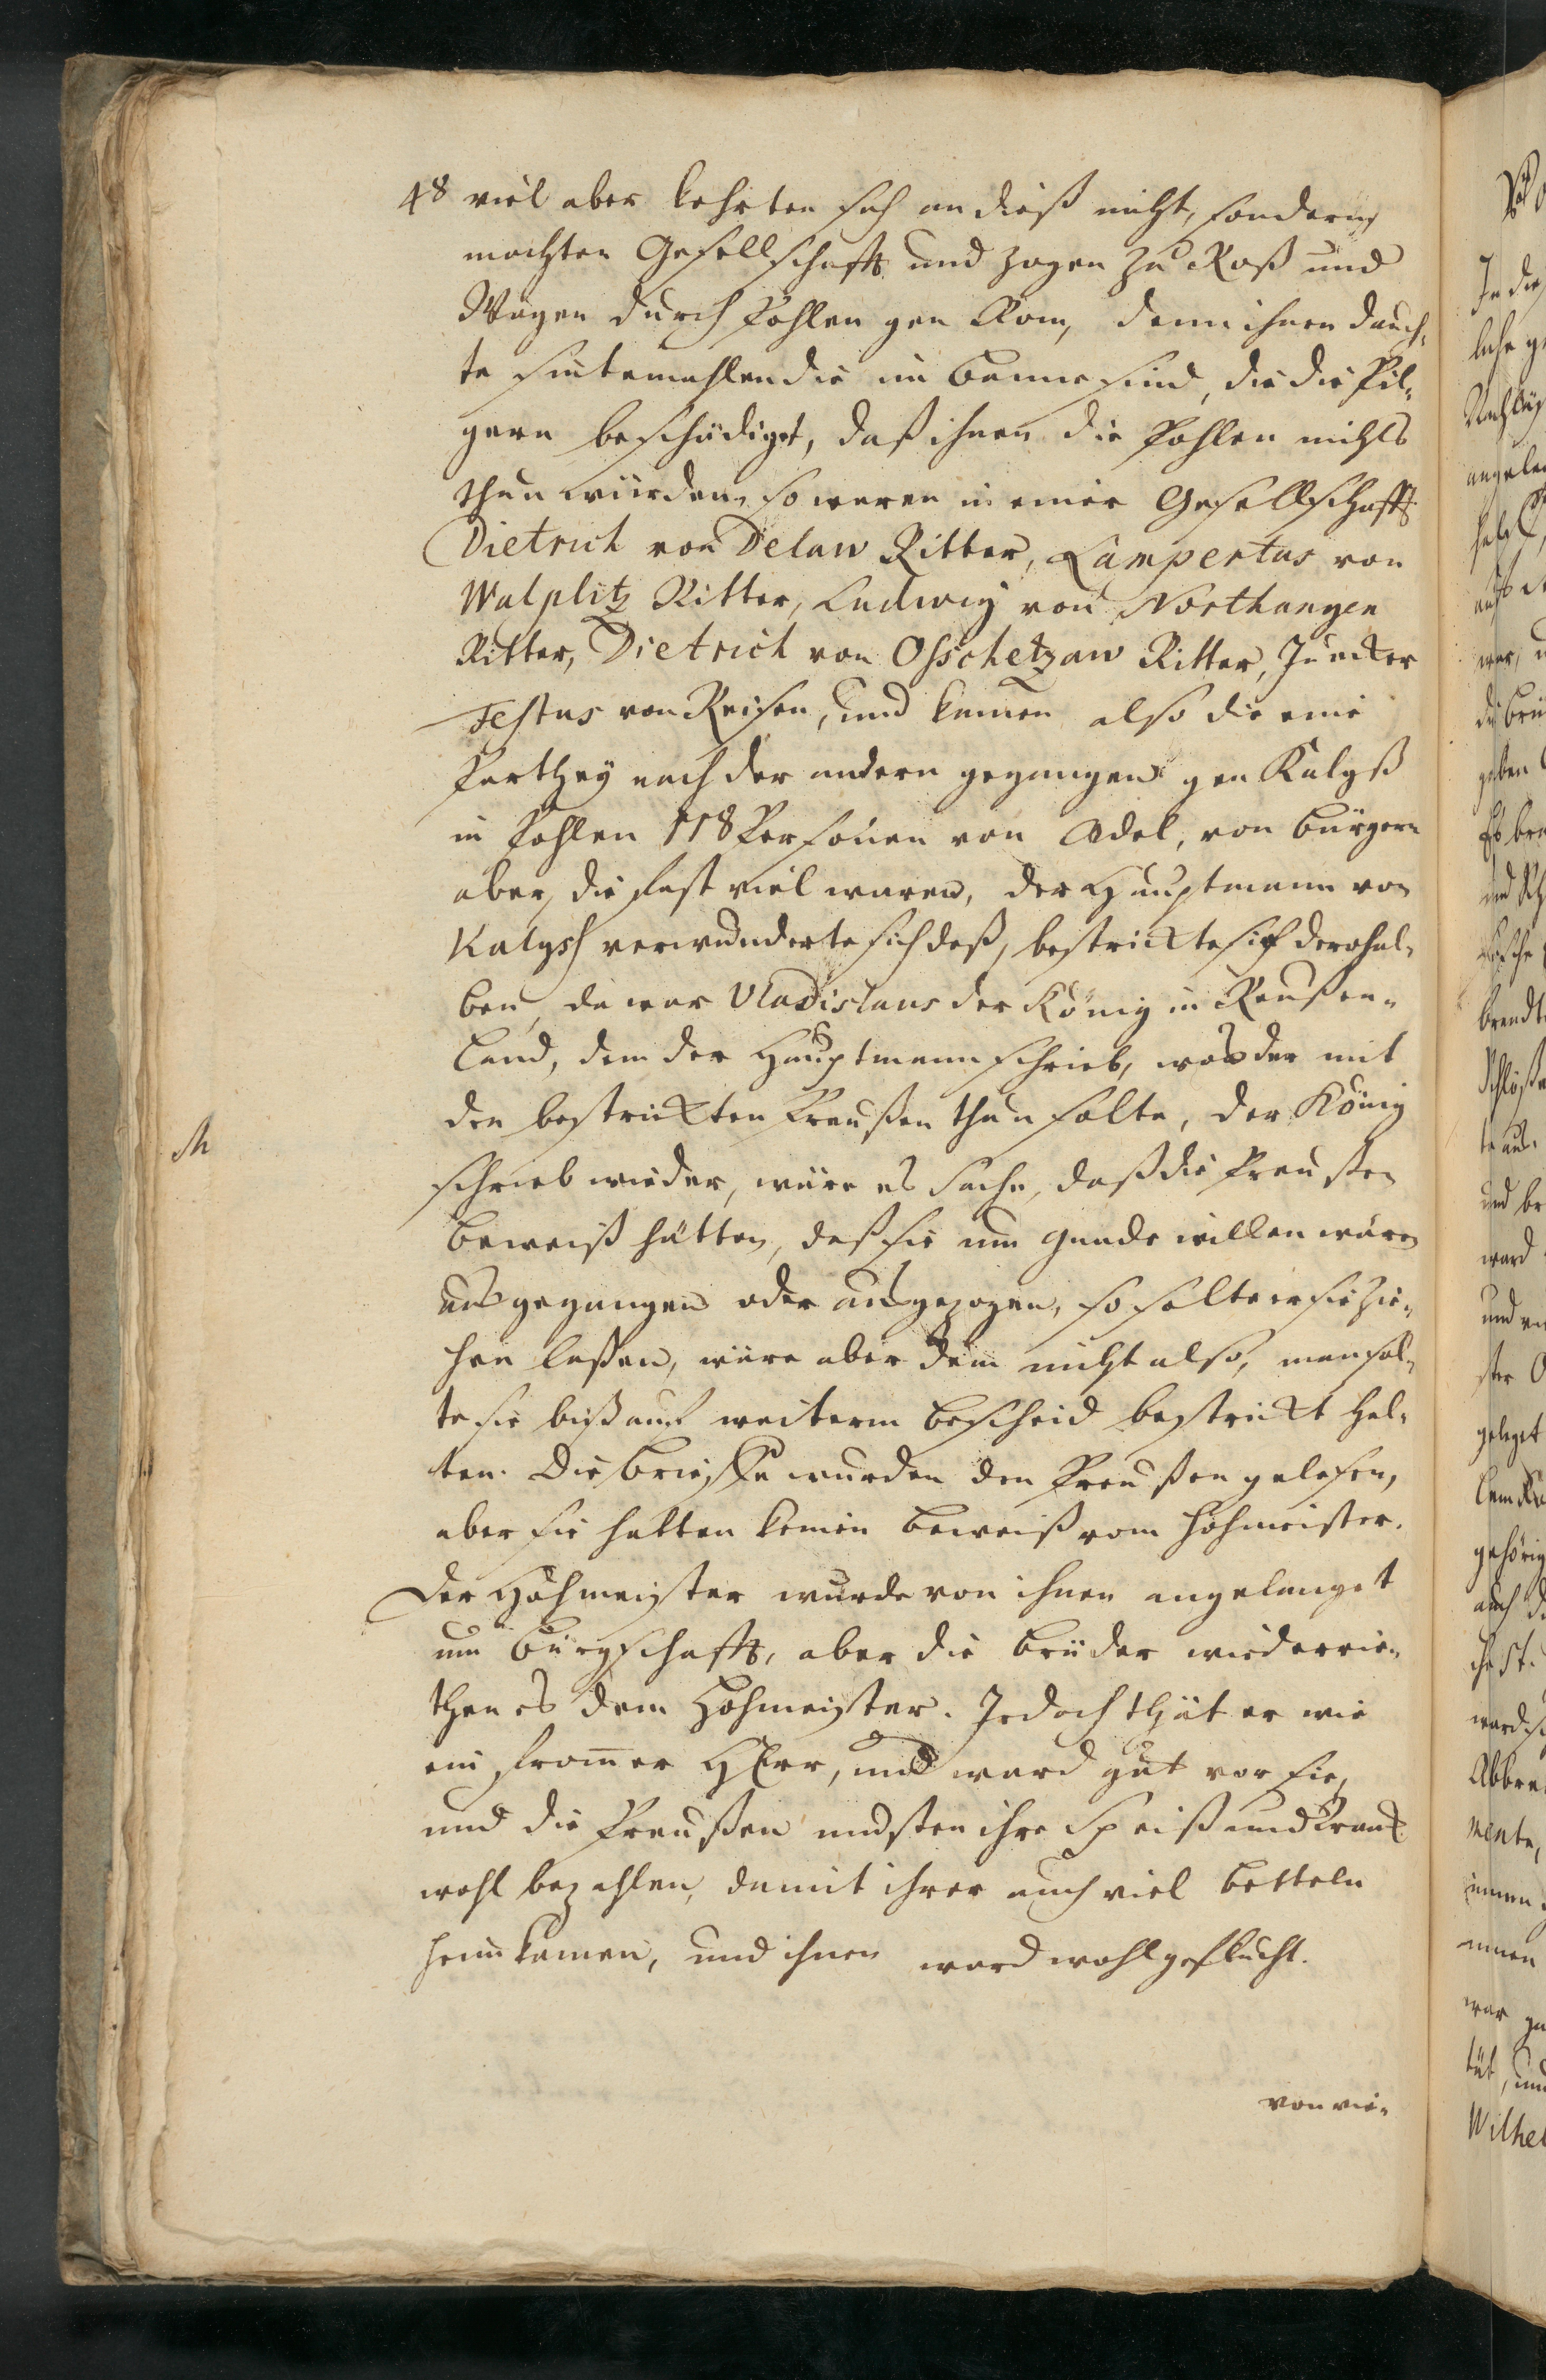 48 viel aber kehrten sich an dieß nicht, sondern
machten Gesellschafft und zogen zu Roß und
Wagen durch Pohlen gen Rom, denn ihnen dauch-
te sintemahlen die im Banne sind, die die Pil-
gern beschädiget, daß ihnen die Pohlen nichts
thun würden, so waren in einer Gesellschafft
Dietrich von Delaw Ritter, Lampertus von
Walplitz Ritter, Ludwig von Northangen
Ritter, Dietrich von Osschetzaw Ritter, Juncker
Festus von Reisen, und kamen also die eine
Parthey nach der andern gegangen gen Kalyß
in Pohlen 118 Personen von Adel, von Bürgern
aber, die fast viel waren, der Hauptmann von
Kalyssh verwunderte sich deß, bestrickte sie derohal-
ben, da war Vladislaus der König in Reußen-
land, dem der Hauptmann schrieb, was der mit
den bestrickten Preußen thun solte, der König
schrieb wieder, wäre es Sache, daß die Preußen
Beweiß hätten, daß sie um Gnade willen wären
ausgegangen oder ausgezogen, so solte er sie zie-
hen laßen, wäre aber dem nicht also, man sol-
te sie biß auf weiterm Bescheid bestrickt hal-
ten. Die Brieffe wurden den Preußen gelesen,
aber sie hatten keinen Beweiß vom Hohmeister.
Der Hohmeister wurde von ihnen angelanget
um Bürgschafft, aber die Brüder wiederrie-
then es dem Hohmeister. Jedoch thät er wie
ein from̅er HErr, und ward gut vor sie,
und die Preußen musten ihre Speiß und Tranck
wohl bezahlen, damit ihrer auch viel betteln
heim kamen, und ihnen ward wohl geflucht.
von vie-